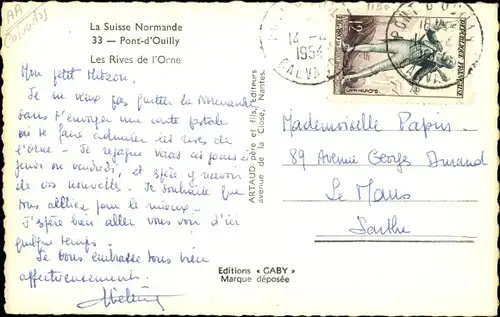 AA
Calvados
La Suisse Normande
33 — Pont-d'Ouilly
Les Rives de l'Orne
Mon petit
Je ne veux pas quitter la Normandie
sans t'envoyer une carte postale
où te faire admirer les rives de
l'Orne - Je regagne Vaas ce
jeudi ou vendredi, et espère y recevoir
de vos nouvelles. Je souhaite que
vous alliez pour le mieux -
J'espère bien aller vous voir d'ici
quelque temps -
Je vous embrasse tous bien
affectueusement.
ARTAUD père et fils, Editeurs
avenue de la Close, Nantes.
Editions « GABY »
Marque déposée
1954
CALVADOS
12F
REPUBLIQUE FRANÇAISE
Mademoiselle Papin
89 Avenue Georges Durand
Le Mans
Sarthe